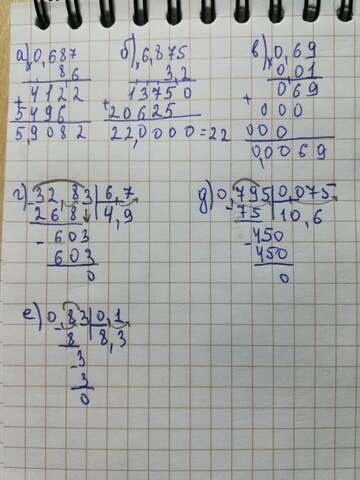 а) 0,687 б) 6,875 в) 0,69
× 8,6 3,2 × 0,01
+ 4122 + 13750 + 069
5496 20625 000
5,9082 22,0000=22 000
0,0069
г) 32,83 | 6,7 д) 0,795 | 0,075
- 268 | 4,9 - 75 | 10,6
- 603 - 450
603 450
0 0
е) 0,83 | 0,1
- 8 | 8,3
- 3
3
0